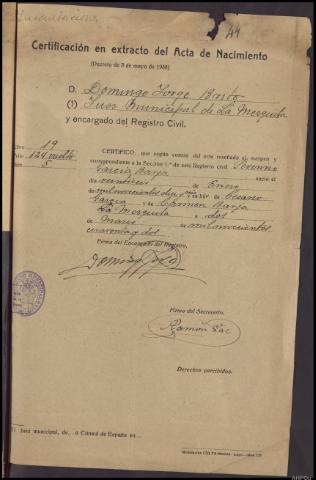 44
Certificación en extracto del Acta de Nacimiento
D. Domingo Jorge
(1) Juez Municipal de La Mezquita
y encargado del Registro Civil.
19
124 vuelto
5
CERTIFICO: que según consta del acta reseñada al margen y
correspondiente a la Sección 1.ª de este Registro civil,
García Barja nació el
día veintiseis de Enero
de mil novecientos
García y de Carmen Barja
La Mezquita a dos
de Marzo de mil novecientos
cuarenta y dos.
Firma del Encargado del Registro,
Domingo Jorge
Firma del Secretario,
Ramón
Derechos percibidos.
Juez municipal, de... o Cónsul de España en...